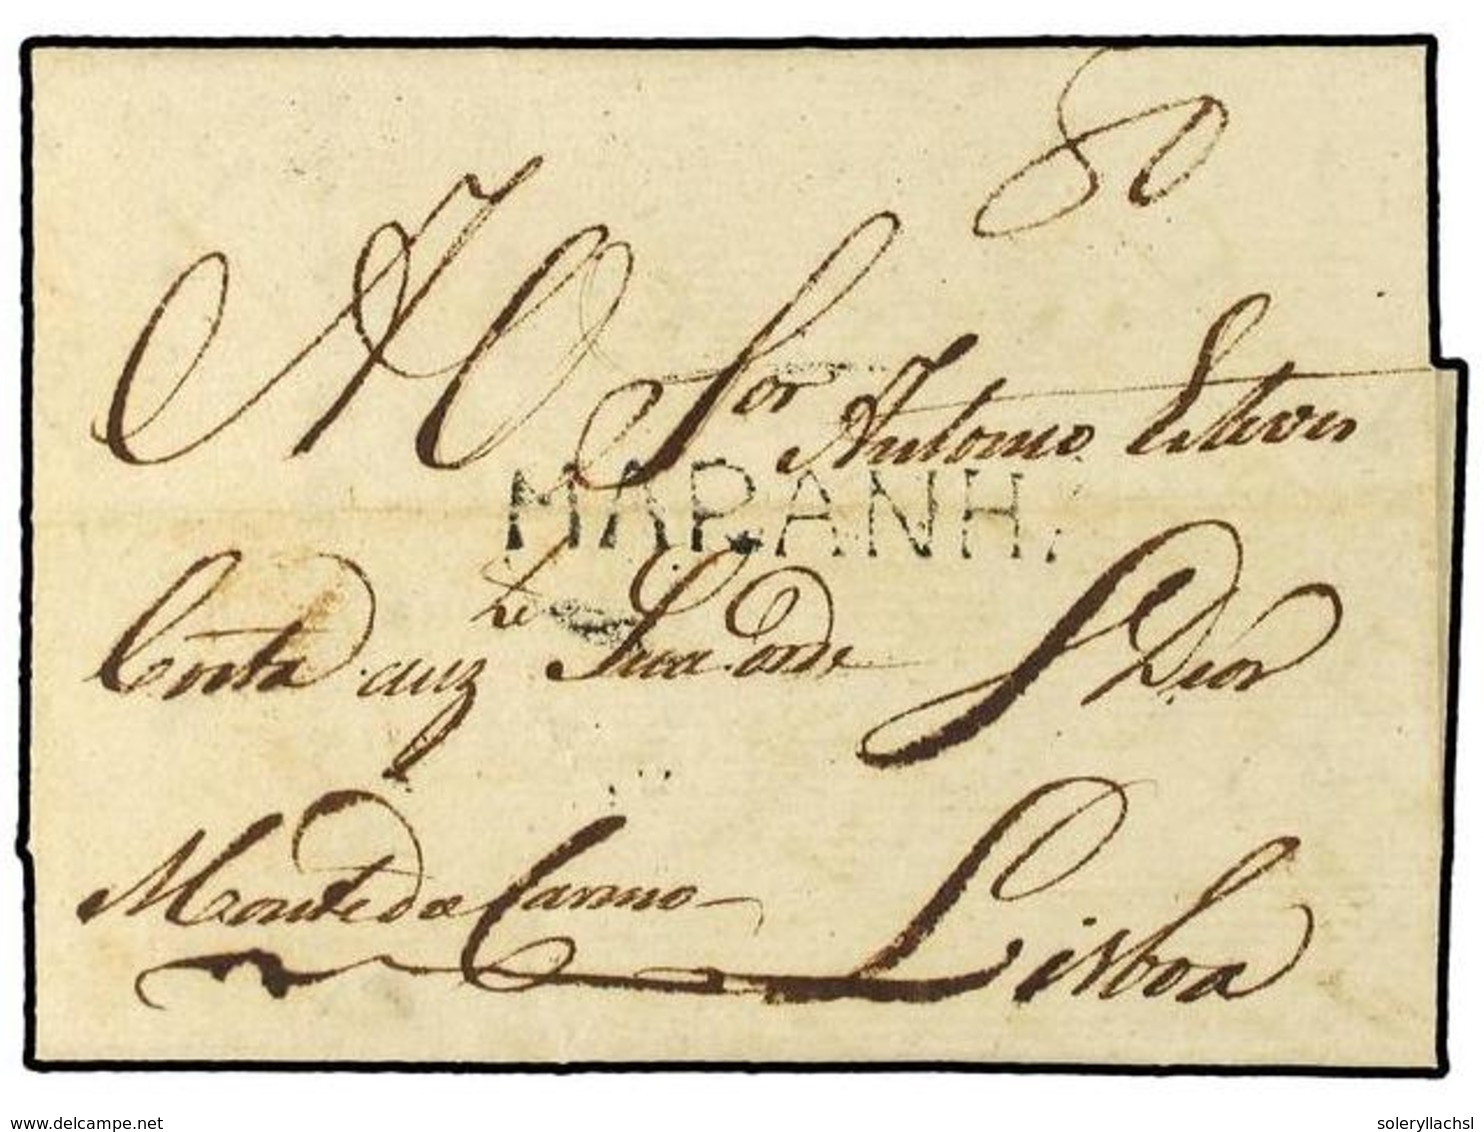 80
AO Sor Antonio Esteves
MARANH.
Costa auz Sua orde S Dior
Monte do Carmo Lisboa
delcampe.net
soleryllachsl